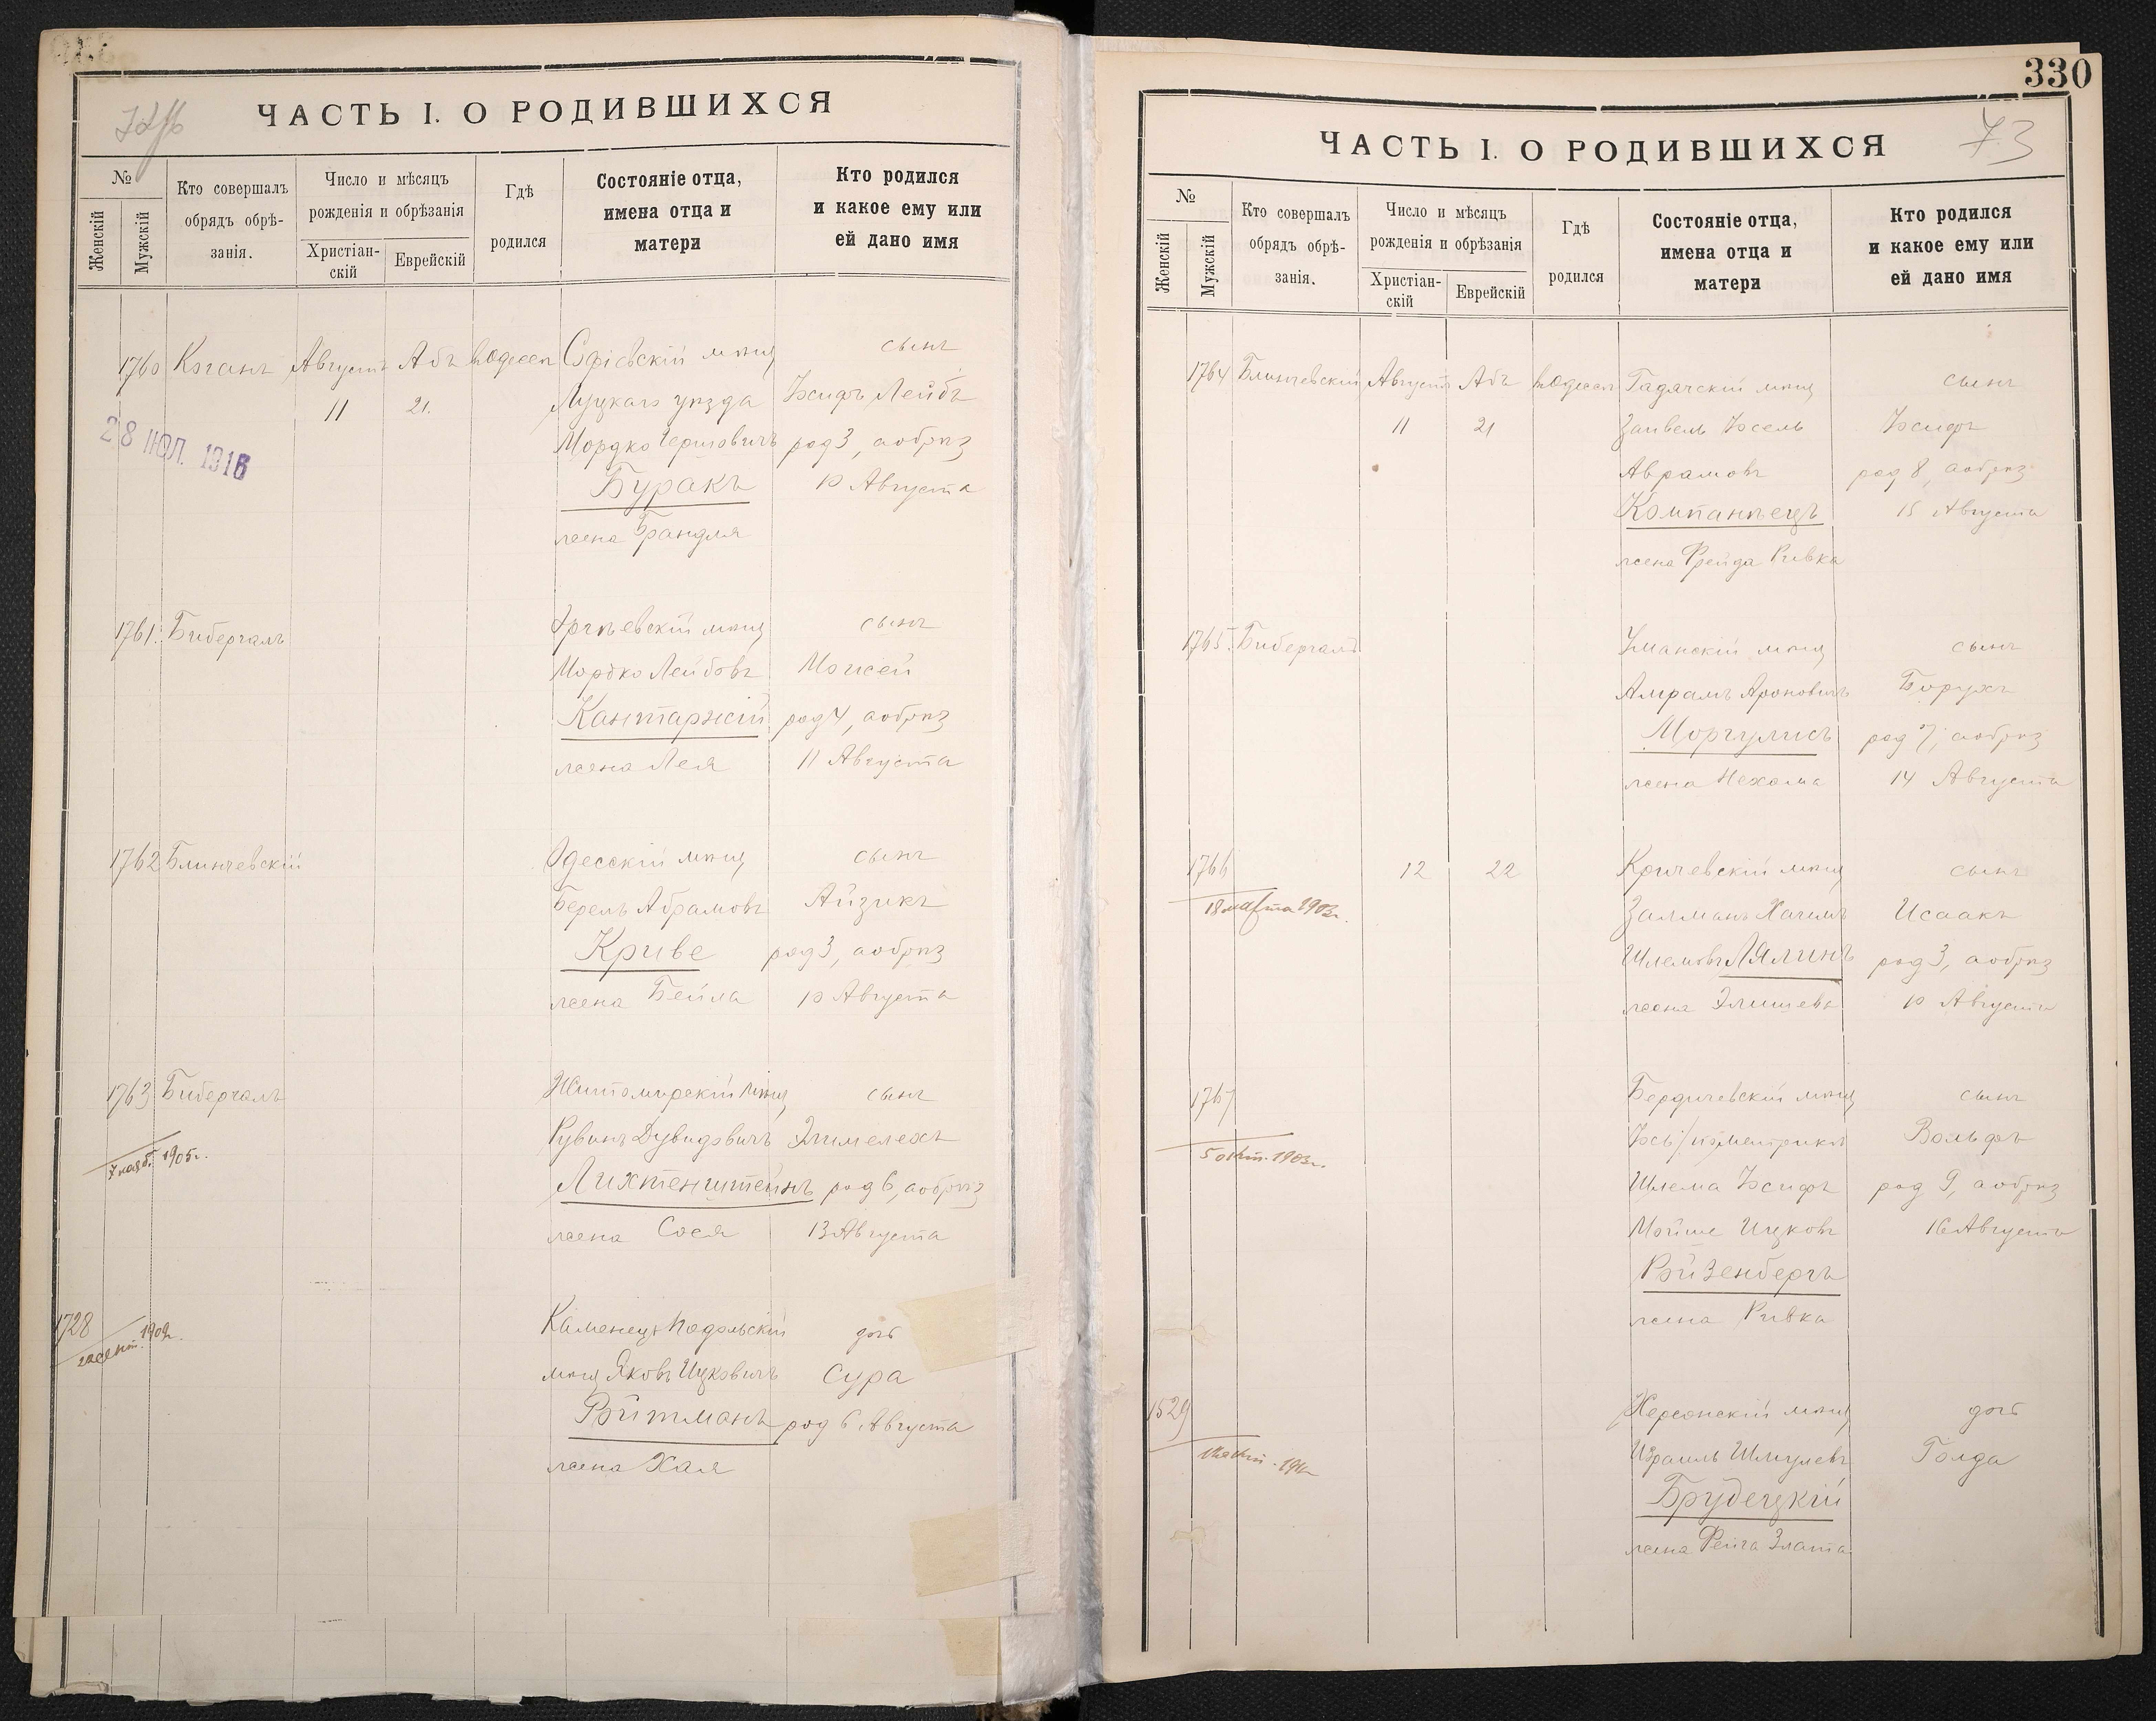 ЧАСТЬ I. О РОДИВШИХСЯ
№
Женскій
Мужскій
Кто совершалъ
обрядъ обрѣ-
занія.
Число и мѣсяцъ
рожденія и обрѣзанія
Христіан-
скій
Еврейскій
Гдѣ
родился
Состояніе отца,
имена отца и
матери
Кто родился
и какое ему или
ей дано имя
1760 Коганъ Августъ Абъ въ Одессѣ Софіевскій мѣщ сынъ
11 21. Луцкаго уѣзда Іосифъ Лейбъ
28 ІЮЛ. 1916
Мордко Гершовичъ род 3, а обрѣз
Буракъ 10 Августа
жена Брандля
1761. Бибергалъ Оргѣевскій мѣщ сынъ
Мордко Лейбовъ Моисей
Кантаржій род 4, а обрѣз
жена Лея 11 Августа
1762 Блинчевскій Одесскій мѣщ сынъ
Берель Абрамовъ Айзикъ
Криве род 3, а обрѣз
жена Бейла 10 Августа
1763 Бибергалъ Житомирскій мѣщ сынъ
Рувинъ Дувидовичъ Элимелехъ
1905г.
Лихтенштейнъ род 6, а обрѣз
жена Сося 13 Августа
1728 Каменецъ Подольскій дочь
мѣщ Яковъ Ицковичъ Сура
Ройтманъ род 6 Августа
жена Хая
330
73
ЧАСТЬ I. О РОДИВШИХСЯ
№
Женскій
Мужскій
Кто совершалъ
обрядъ обрѣ-
занія.
Число и мѣсяцъ
рожденія и обрѣзанія
Христіан-
скій
Еврейскій
Гдѣ
родился
Состояніе отца,
имена отца и
матери
Кто родился
и какое ему или
ей дано имя
1764 Блинчевскій Августъ Абъ въ Одессѣ Гадячскій мѣщ сынъ
11 21 Зайвель Іосель Іосифъ
Аврамовъ род 8, а обрѣз
Компанѣецъ 15 Августа
жена Фрейда Ривка
1765. Бибергалъ Уманскій мѣщ сынъ
Амрамъ Ароновичъ Борухъ
Моргулисъ род 7, а обрѣз
жена Нехама 14 Августа
1766 12 22 Кричевскій мѣщ сынъ
18 марта 1903г.
Залманъ Хаимъ Исаакъ
Шлемовъ Лялинъ род 3, а обрѣз
жена Элишева 10 Августа
1767 Бердичевскій мѣщ сынъ
Вольфъ
5 окт. 1903г.
Шлема Іосифъ род 9, а обрѣз
Мойше Ицковъ 16 Августа
Ройзенбергъ
жена Ривка
1529 Херсонскій мѣщ дочь
Израиль Шмулевъ Голда
Брудецкій
жена Фейга Злата